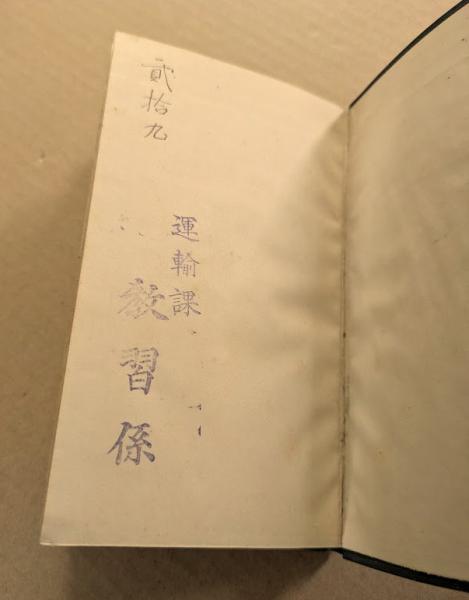 貳拾九
運輸課
教習係